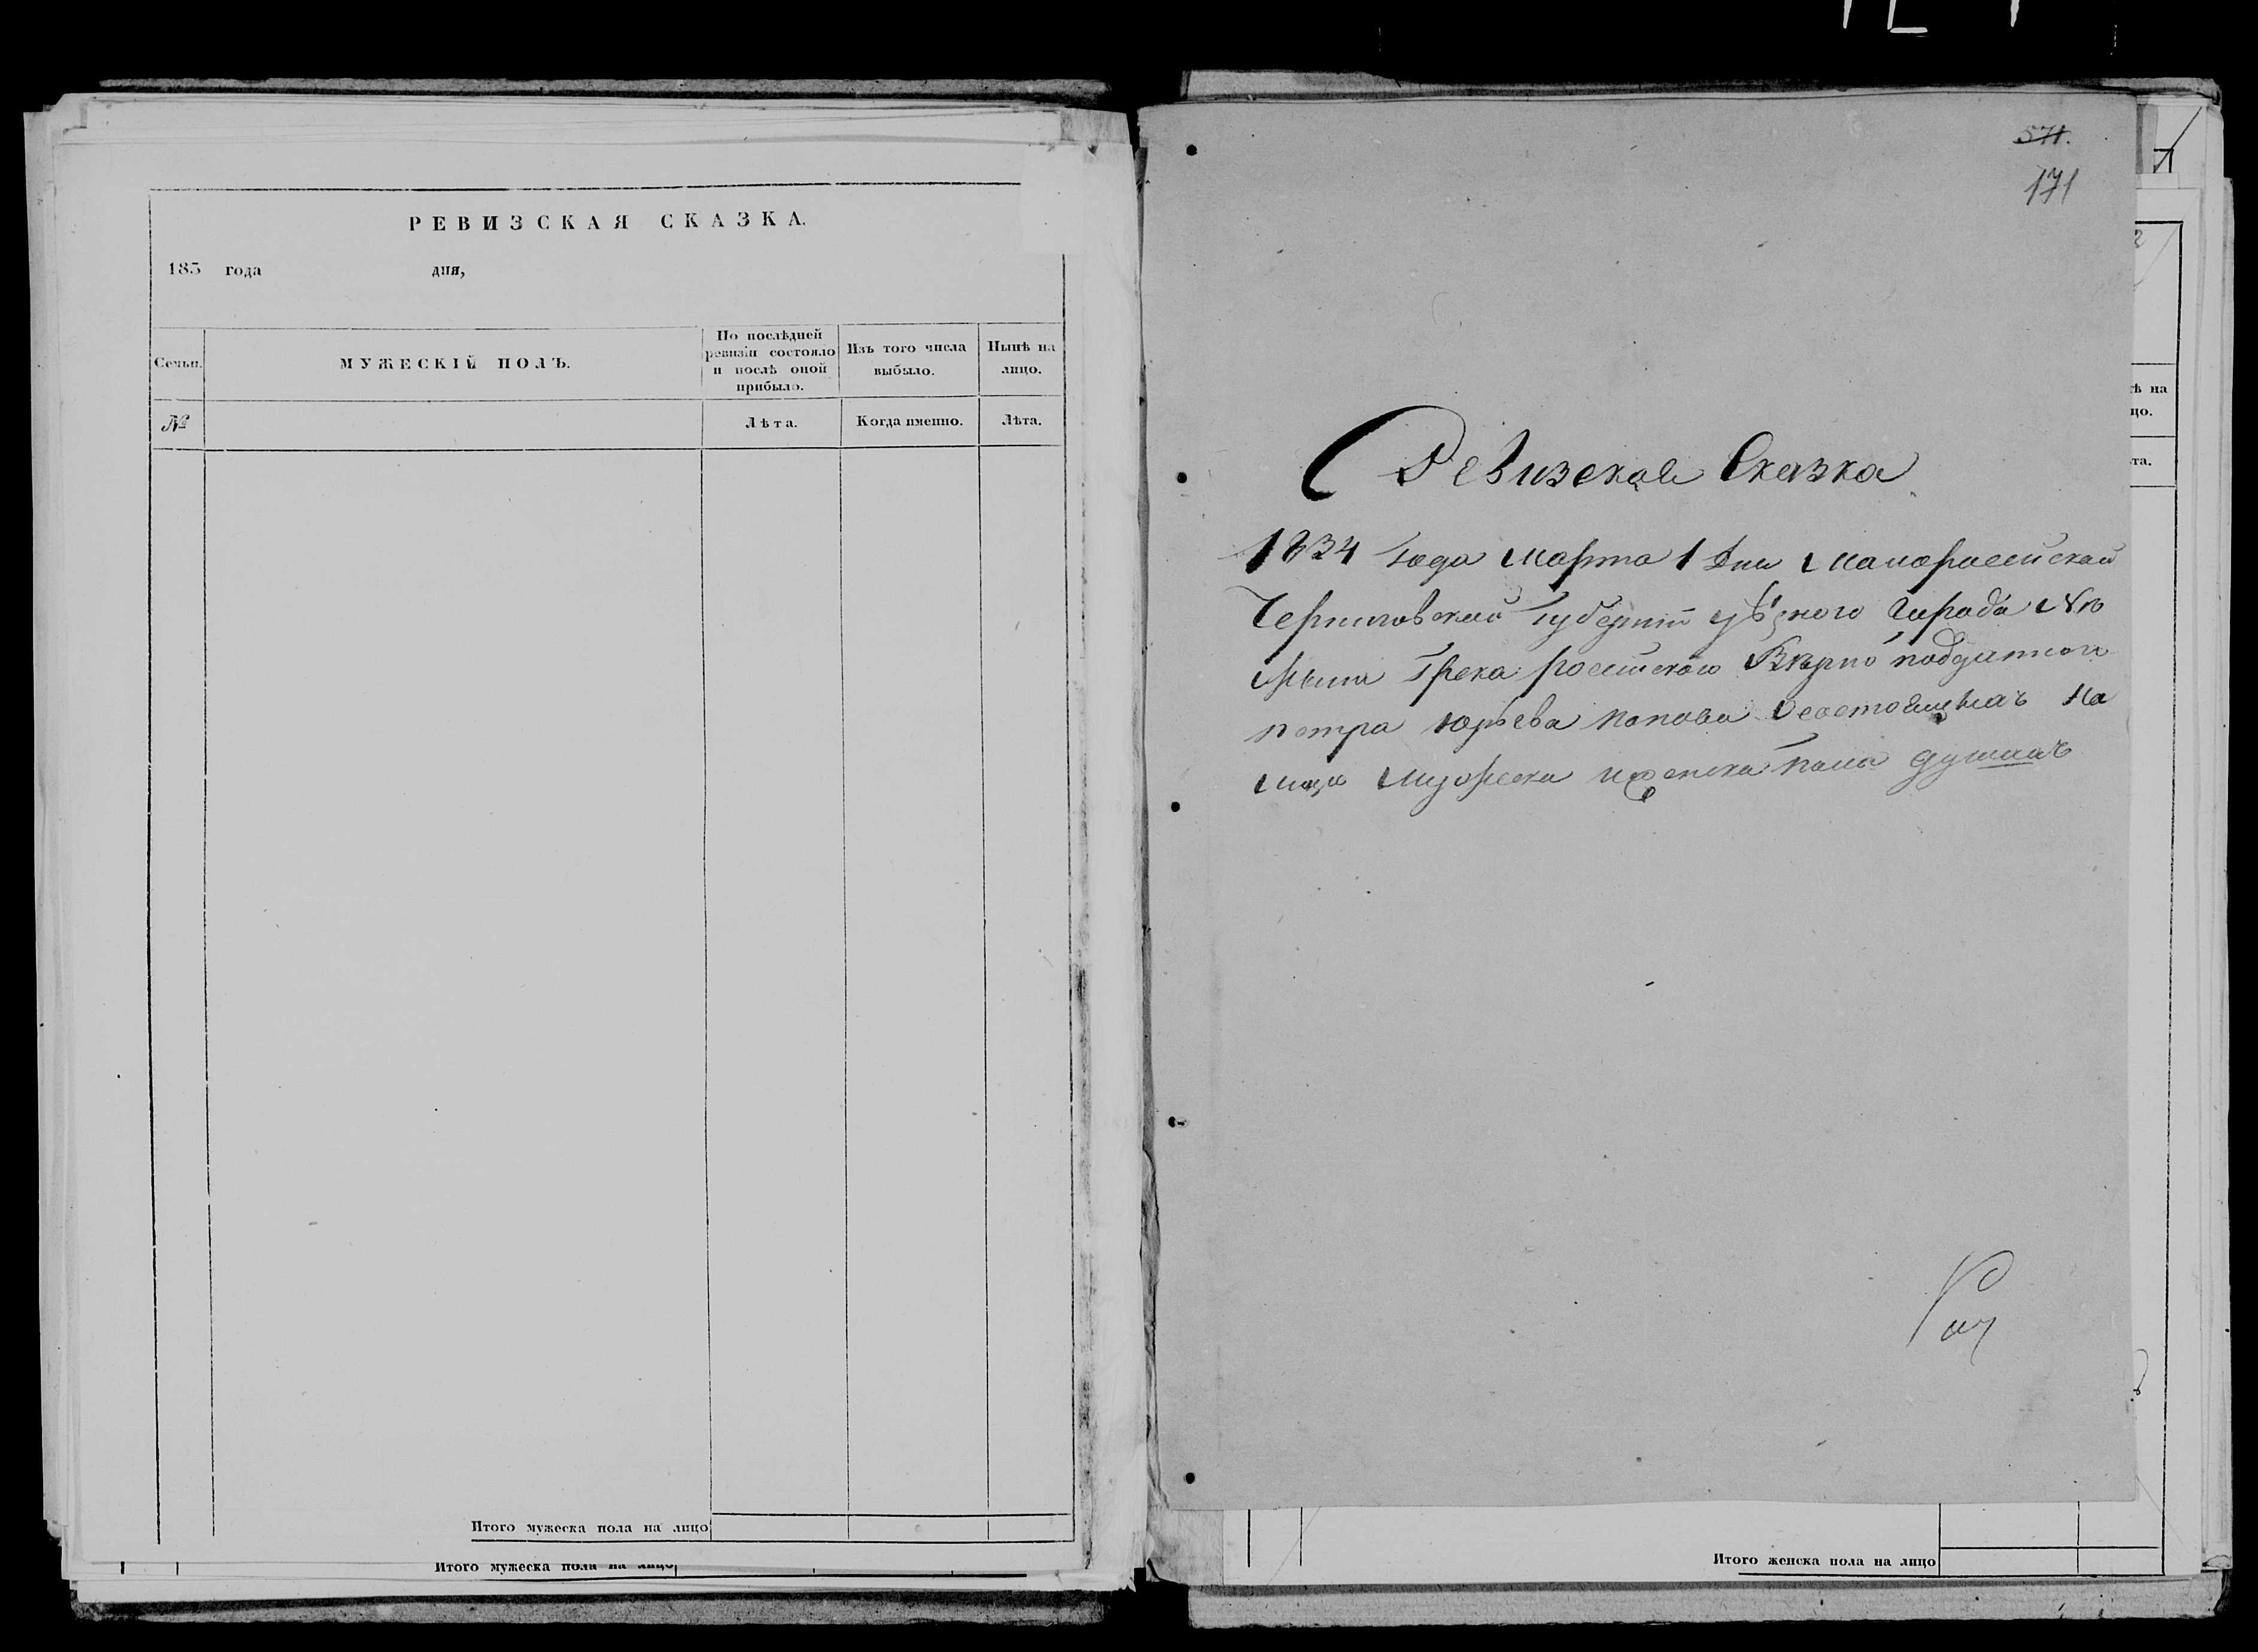 РЕВИЗСКАЯ СКАЗКА.
183 года дня,
Семьи.
МУЖЕСКІЙ ПОЛЪ.
По послѣдней
ревизіи состояло
и послѣ оной
прибыло.
Изъ того числа
выбыло.
Нынѣ на
лицо.
№
Лѣта.
Когда именно.
Лѣта.
Итого мужеска пола на лицо
Итого мужеска пола на лицо
571.
171
Ревизская Сказка
1834 года марта 1 дня Малоросiйской
Черниговской Губернiи уѣзного Города Нѣ
жина Грека росiйского Вѣрно подданного
петра юрьева попова О состоящихъ на
лицо мужеска и женска пола душахъ
ѣ на
цо.
та.
Итого женска пола на лицо